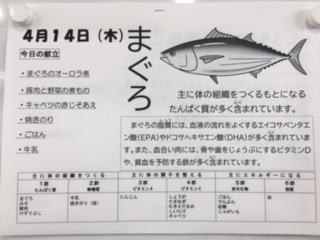 4月14日(木)
まぐろ
今日の献立
・まぐろのオーロラ煮
・豚肉と野菜の煮もの
・キャベツの赤じそあえ
・焼きのり
・ごはん
・牛乳
主に体の組織をつくるもとになる
たんぱく質が多く含まれています。
まぐろの脂質には、血液の流れをよくするエイコサペンタエ
ン酸(EPA)やドコサヘキサエン酸(DHA)が多く含まれていま
す。また、血合い肉には、骨や歯をじょうぶにするビタミンD
や、貧血を予防する鉄が多く含まれています。
主に体の組織をつくる
主に体の調子を整える
主にエネルギーになる
1群 2群 3群 4群 5群 6群
たんぱく質 無機質 ビタミンA ビタミンC 炭水化物 脂質
まぐろ
みそ
豚肉
けずりぶし
牛乳
焼きのり
にんじん
しょうが
たまねぎ
しいたけ
キャベツ
ごはん
でんぷん
砂糖
じゃがいも
油